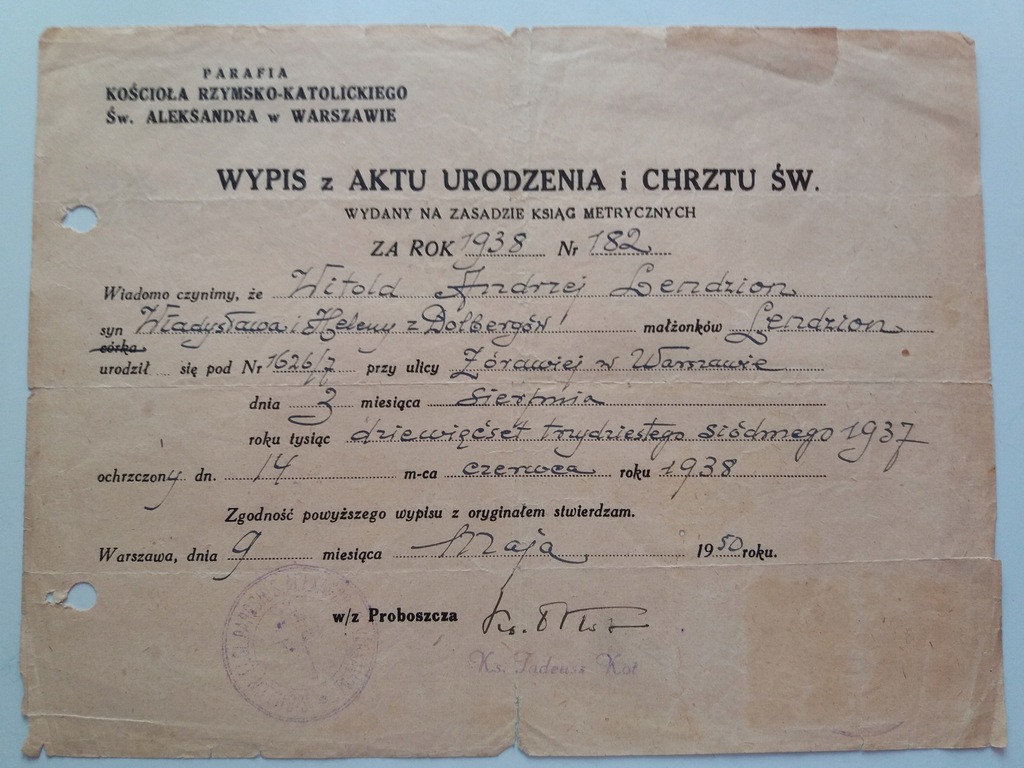 PARAFIA
KOŚCIOŁA RZYMSKO-KATOLICKIEGO
Św. ALEKSANDRA w WARSZAWIE
WYPIS z AKTU URODZENIA i CHRZTU ŚW.
WYDANY NA ZASADZIE KSIĄG METRYCZNYCH
ZA ROK 1938 Nr 182
Wiadomo czynimy, że Witold Andrzej Lendzion
syn Władysława i Heleny z Dolbergów małżonków Lendzion
córka
urodził się pod Nr 1626/7 przy ulicy Żórawiej w Warszawie
dnia 3 miesiąca sierpnia
roku tysiąc dziewięćset trzydziestego siódmego 1937
ochrzczony dn. 14 m-ca czerwca roku 1938
Zgodność powyższego wypisu z oryginałem stwierdzam.
Warszawa, dnia 9 miesiąca Maja 1950 roku.
w/z Proboszcza Ks. T Kot
Ks. Tadeusz Kot